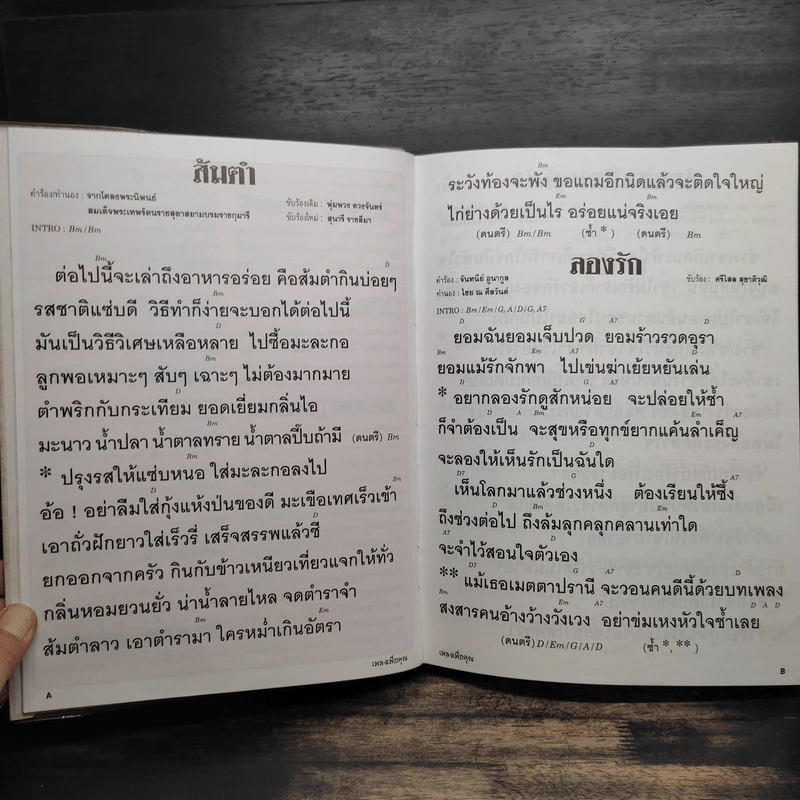 ส้มตำ
คำร้อง/ทำนอง : จากโคลงพระนิพนธ์
สมเด็จพระเทพรัตนราชสุดาสยามบรมราชกุมารี
ขับร้องเดิม : พุ่มพวง ดวงจันทร์
ขับร้องใหม่ : สุนารี ราชสีมา
INTRO : Bm/Bm
Bm D
ต่อไปนี้จะเล่าถึงอาหารอร่อย คือส้มตำกินบ่อยๆ
Bm
รสชาติแซ่บดี วิธีทำก็ง่ายจะบอกได้ต่อไปนี้
D
มันเป็นวิธีวิเศษเหลือหลาย ไปซื้อมะละกอ
Bm
ลูกพอเหมาะๆ สับๆ เฉาะๆ ไม่ต้องมากมาย
D
ตำพริกกับกระเทียม ยอดเยี่ยมกลิ่นไอ
Bm
มะนาว น้ำปลา น้ำตาลทราย น้ำตาลปี๊บถ้ามี (ดนตรี) Bm
Bm
* ปรุงรสให้แซ่บหนอ ใส่มะละกอลงไป
D Bm
อ้อ ! อย่าลืมใส่กุ้งแห้งป่นของดี มะเขือเทศเร็วเข้า
D
เอาถั่วฝักยาวใส่เร็วรี่ เสร็จสรรพแล้วซี
ยกออกจากครัว กินกับข้าวเหนียวเที่ยวแจกให้ทั่ว
กลิ่นหอมยวนยั่ว น่าน้ำลายไหล จดตำราจำ
Bm Em
ส้มตำลาว เอาตำรามา ใครหม่ำเกินอัตรา
เพลงเพื่อคุณ
A
Bm
ระวังท้องจะพัง ขอแถมอีกนิดแล้วจะติดใจใหญ่
Em
ไก่ย่างด้วยเป็นไร อร่อยแน่จริงเอย
(ดนตรี) Bm/Bm (ซ้ำ * ) (ดนตรี) Bm
ลองรัก
คำร้อง : จันทนีย์ อูนากูล
ทำนอง : ไชย ณ ศีลวันต์
ขับร้อง : ศรีไศล สุชาติวุฒิ
INTRO : Bm/Em/G, A/D/G, A7
D G A7 D
ยอมฉันยอมเจ็บปวด ยอมร้าวรวดอุรา
Bm Em A7 D
ยอมแม้รักจักพา ไปเข่นฆ่าเย้ยหยันเล่น
D G A7
* อยากลองรักดูสักหน่อย จะปล่อยให้ช้ำ
D A Bm Em A7
ก็จำต้องเป็น จะสุขหรือทุกข์ยากแค้นลำเค็ญ
จะลองให้เห็นรักเป็นฉันใด
D7 G A7
เห็นโลกมาแล้วช่วงหนึ่ง ต้องเรียนให้ซึ้ง
D Bm Em
ถึงช่วงต่อไป ถึงล้มลุกคลุกคลานเท่าใด
A7 D
จะจำไว้สอนใจตัวเอง
D7 G A7 D
** แม้เธอเมตตาปรานี จะวอนคนดีนี้ด้วยบทเพลง
Bm Em A7 D A D
สงสารคนอ้างว้างวังเวง อย่าข่มเหงหัวใจช้ำเลย
(ดนตรี) D/Em/G/A/D (ซ้ำ *, ** )
เพลงเพื่อคุณ
B